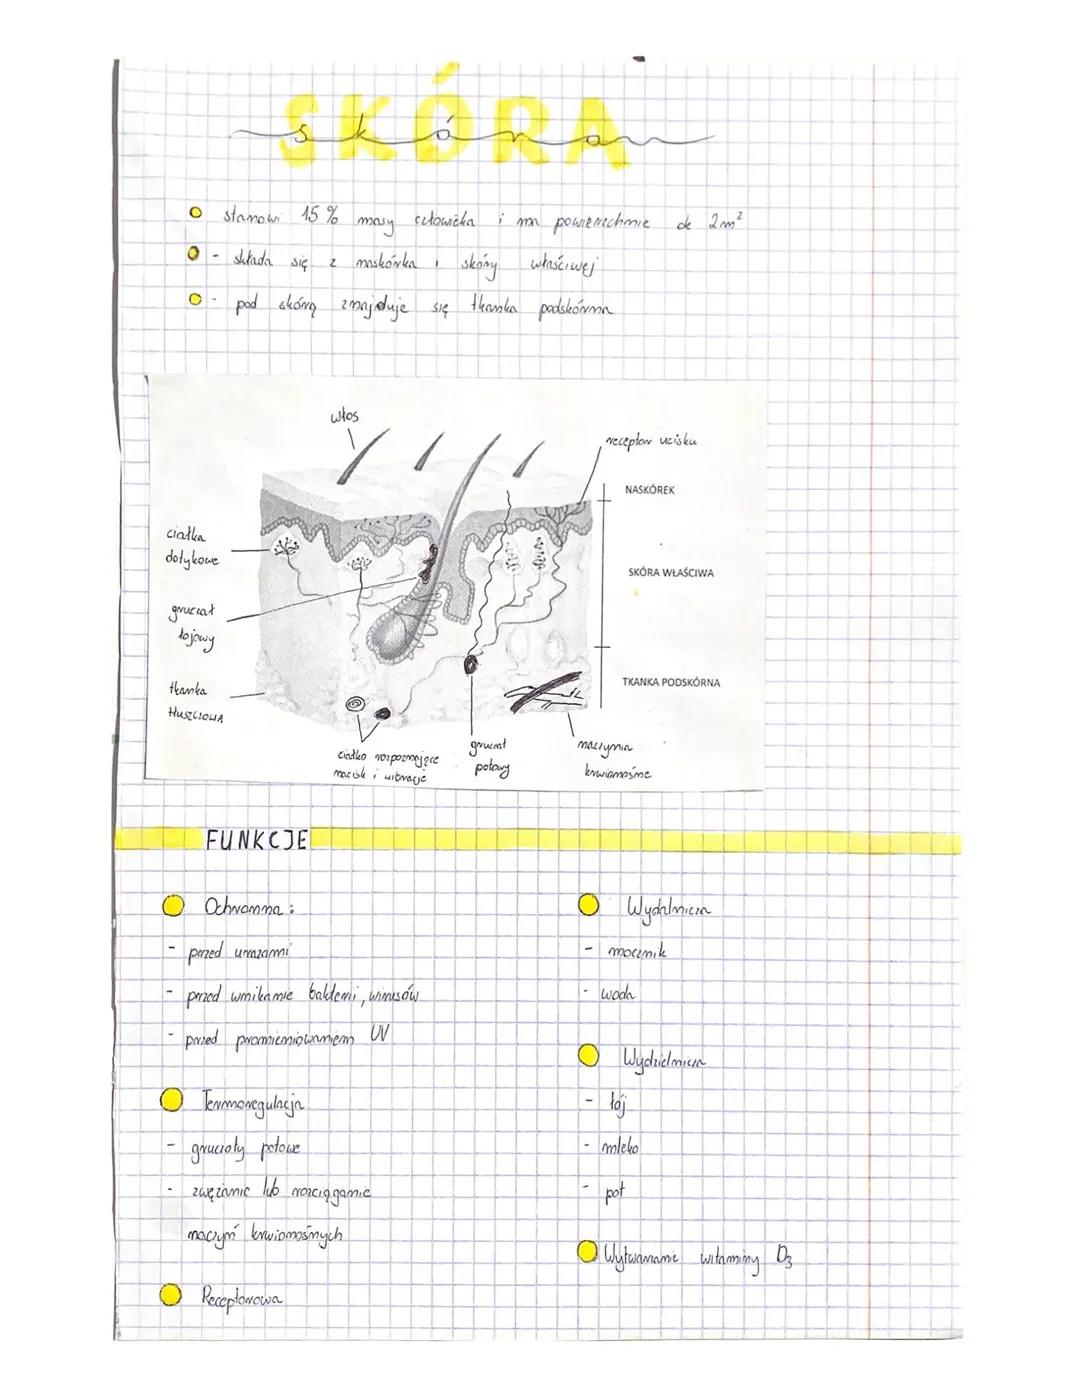 SKÓRA
skóra
stanowi 15% masy człowieka i ma powierzchnie ok 2m²
- składa się z naskórka i skóry właściwej
- pod skórą znajduje się tkanka podskórna
włos
receptor ucisku
NASKÓREK
ciałka
dotykowe
SKÓRA WŁAŚCIWA
gruczoł
łojowy
tkanka
tłuszczowa
TKANKA PODSKÓRNA
ciałko rozpoznające
nacisk i wibracje
gruczoł
potowy
naczynia
krwionośne
FUNKCJE
Ochronna:
- przed urazami
- przed wnikanie bakterii, wirusów
- przed promieniowaniem UV
Termoregulacja
- gruczoły potowe
- zwężanie lub rozciąganie
naczyń krwionośnych
Receptorowa
Wydalnicza
- mocznik
- woda
Wydzielnicza
- łój
- mleko
- pot
Wytwarzanie witaminy D₃